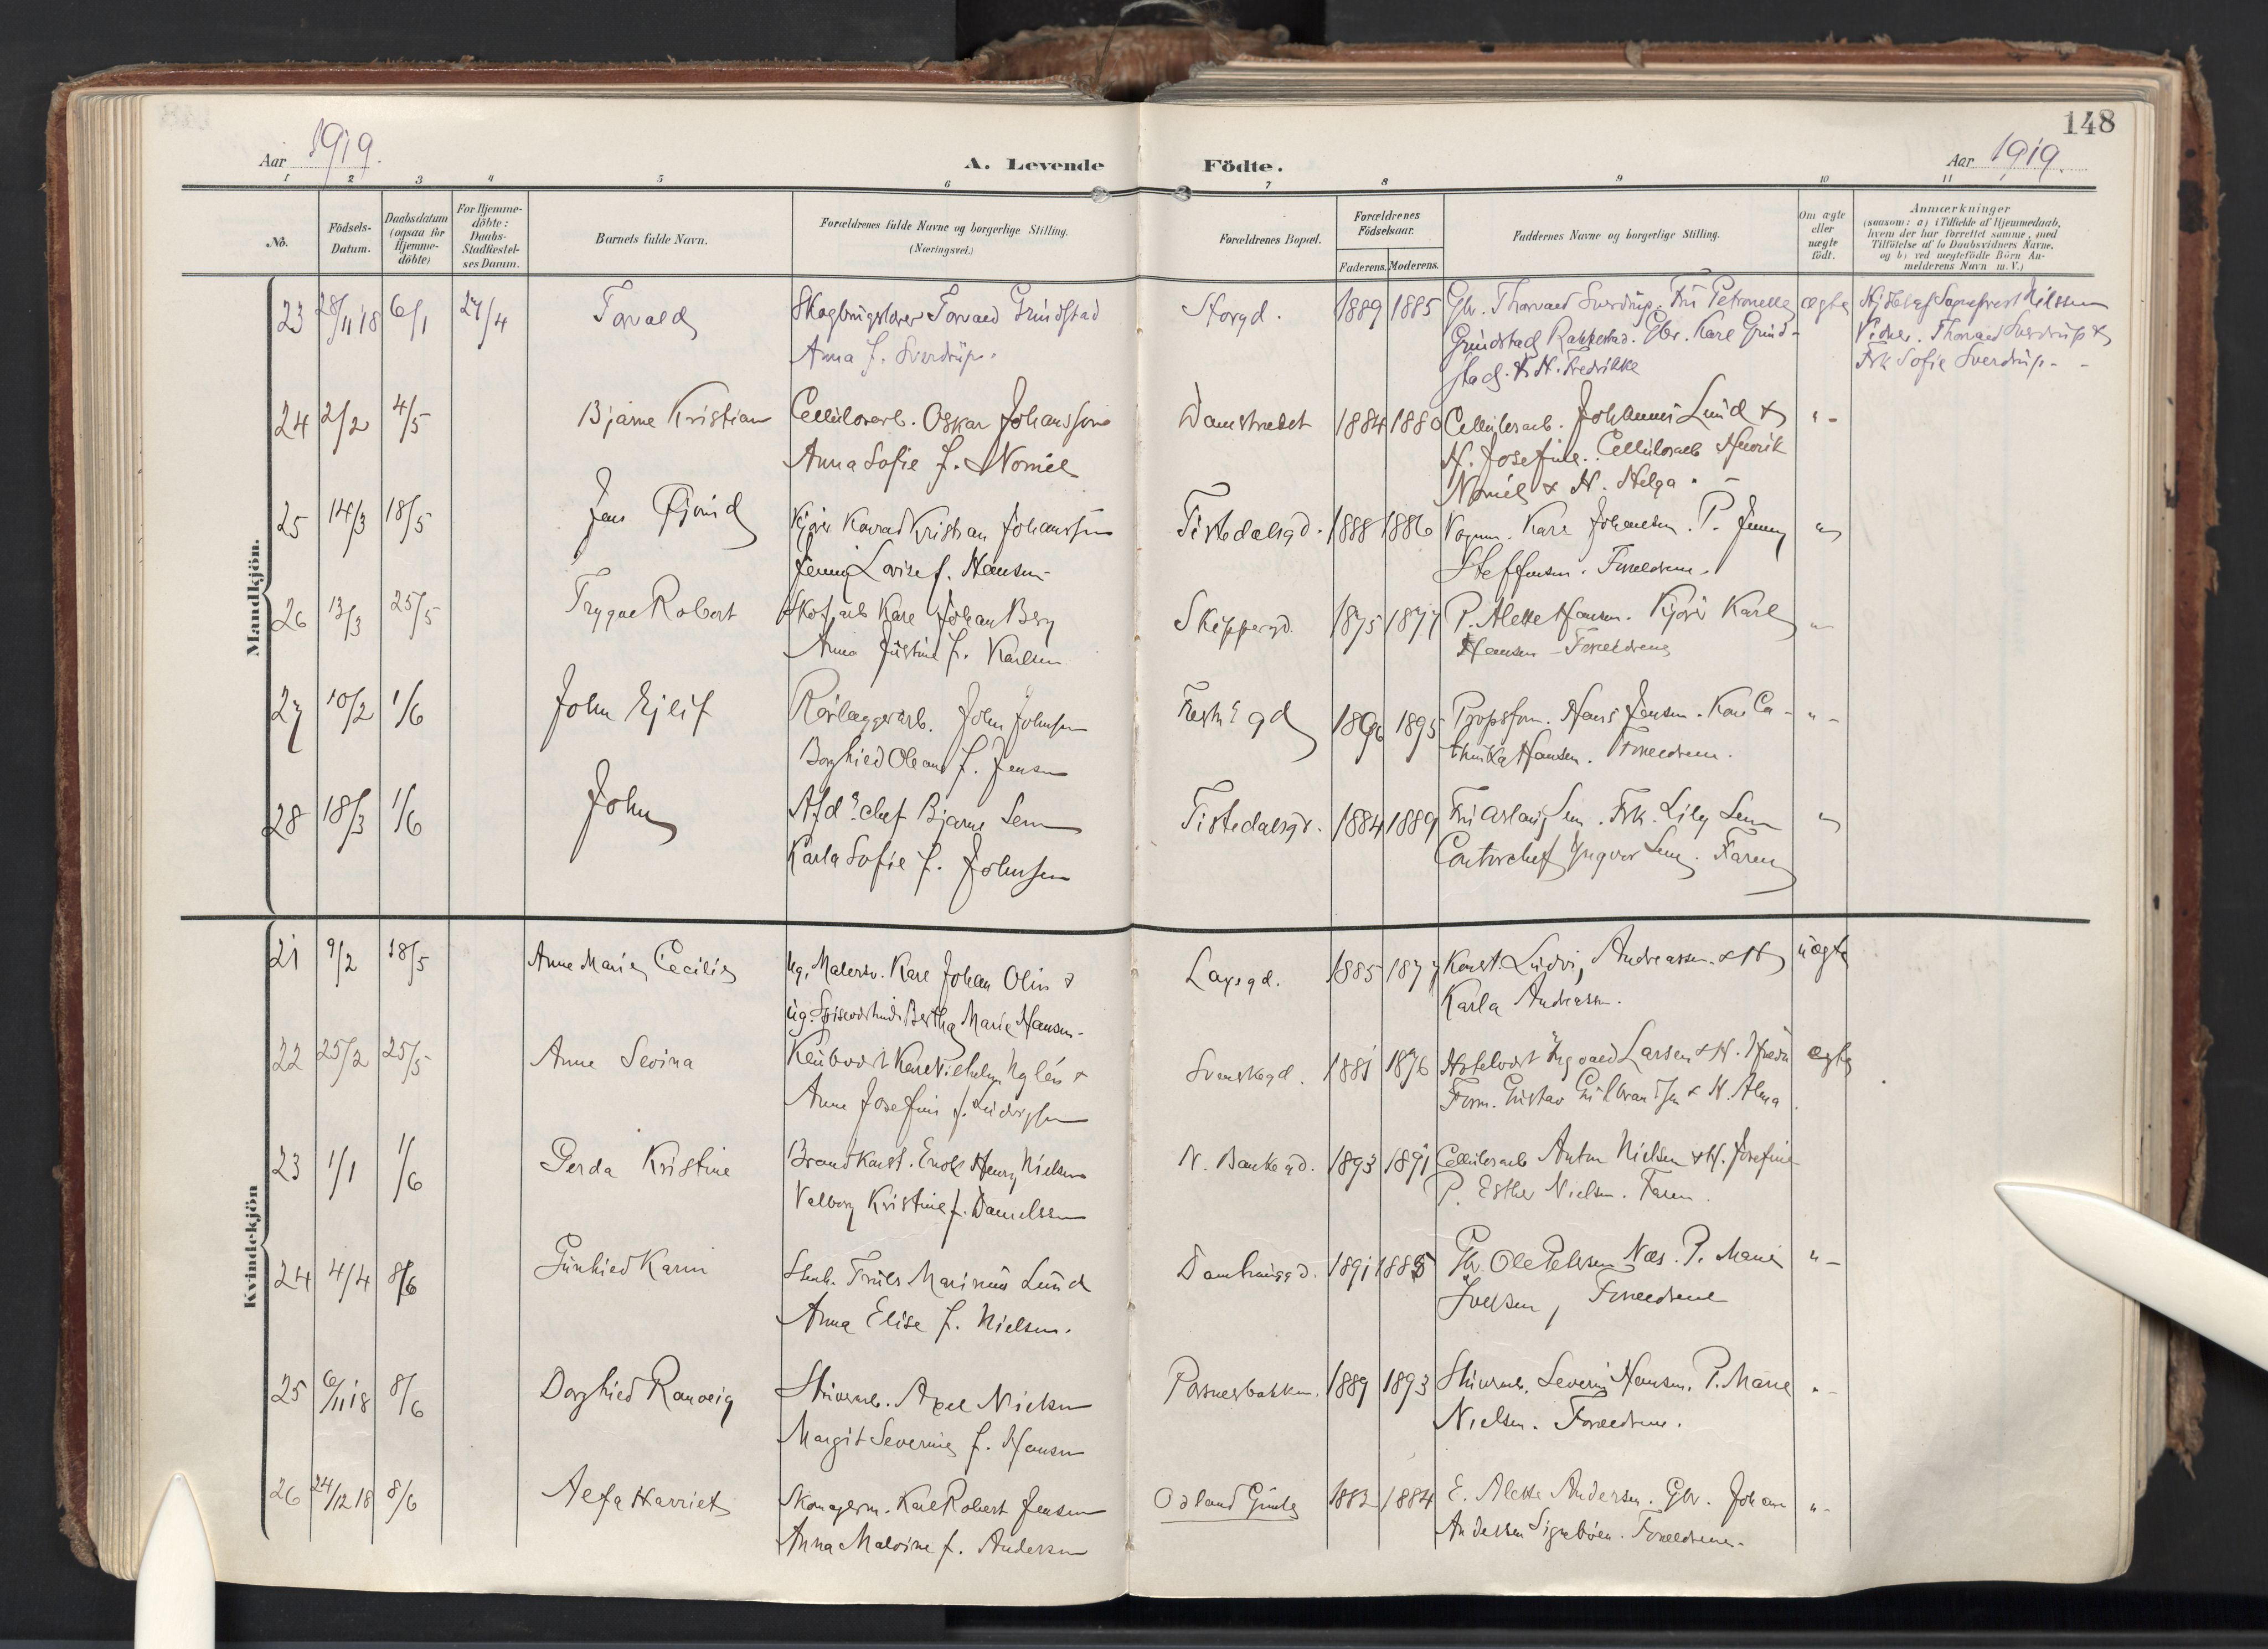 148
Aar 1919.
A. Levende Födte.
Aar 1919.
1 2 3 4 5 6 7 8 9 10 11
No.
Födsels-Datum.
Daabsdatum (ogsaa for Hjemme-döbte)
For Hjemme-döbte: Daabs-Stadfæstel-ses Datum.
Barnets fulde Navn.
Forældrenes fulde Navne og borgerlige Stilling. (Næringsvei.)
Forældrenes Bopæl.
Forældrenes Födselsaar.
Faderens. Moderens.
Faddernes Navne og borgerlige Stilling.
Om ægte eller uægte födt.
Anmærkninger
(saasom: a) i Tilfælde af Hjemmedaab,
hvem der har forrettet samme, med
Tilföielse af to Daabsvidners Navne,
og b) ved uægtefödte Börn An-
melderens Navn m. V.)
Mandkjön.
23 28/11 18 6/1 27/4 Torvald Torvald Grindstad Storgd. 1889 1885 Gbr. Thorvald Sverdrup. Fru Petronelle ægte Sogneprest Nilssen
Anna f. Sverdrup. Grindstad Rakkestad. Gbr. Karl Grind- Vidner. Thorvald Sverdrup &
stad. & H. Fredrikke Frk Sofie Sverdrup - -
24 2/2 4/5 Bjarne Kristian Cellulosearb. Oskar Johansson Damstrædet 1884 1880 Cellulosearb. Johannes Lund & " -
Anna Sofie f. Norniel H. Josefine. Cellulosearb Henrik
Norniel & H. Helga. -
25 14/3 18/5 Jens Øivind Kjører Konrad Kristian Johanssen Tistedalsgd. 1888 1886 Vognm. Karl Johansen. P. Jenny "
Jenny Lovise f. Hansen Steffensen. Forældrene.
26 13/3 25/5 Trygve Robert Skotöiarb Karl Johan Berg Skippergd. 1875 1877 P. Alette Hansen. Kjører Karl "
Anna Justine f. Karlsen Hansen - Forældrene
27 10/2 1/6 John Ejlif Rörlæggerarb. John Johnsen 1896 1895 Hans Jensen. Kone Ca- " -
Borghild Oleane f. Jensen Hansen. Forældrene.
28 18/3 1/6 John Afd.chef Bjarne Lem Tistedalsgd. 1884 1889 Fru Aslaug Lem. Frk. Lily Lem "
Karla Sofie f. Johnsen Contorchef Yngvar Lem. Faren
Kvindekjön
21 9/2 18/5 Anne Marie Cecilie Ug. Malersv. Karl Johan Olin & 1885 1877 Andreassen & H uægte
ug. Bertha Marie Hansen. Karla Andreassen.
22 25/2 25/5 Anne Sevina Karl Vilhelm Nylén & Svenskegd. 1881 1876 Hotelvært Ingvald Larsen & H. ægte
Anne Josefine f. Ludvigsen Form. Gustav Gulbrandsen & H. Alma.
23 1/1 1/6 Gerda Kristine Brandkonst. Henry Nielsen N. Bankegd. 1893 1891 Cellulosearb Anton Nielsen & H. Josefine
Valborg Kristine f. Danielssen P. Esther Nielsen. Faren.
24 4/4 8/6 Gunhild Karin Stenh. Truls Marinius Lund Damhusgd. 1891 1885 Gbr. Ole Petersen Næs. P. Marie " -
Anna Elise f. Nielsen. Iversen, Forældrene
25 6/11 18 8/6 Borghild Ranveig Axel Nielsen Posnerbakken. 1889 1893 Severin Hansen. P. Marie " -
Margit Severine f. Hansen Nielsen. Forældrene.
26 24/12 18 8/6 Aefa Harriet Skomagerm. Karl Robert Jensen 1882 1884 E. Alette Andersen. Gbr. Johan " -
Anna Malvine f. Andersen Andersen Forældrene.